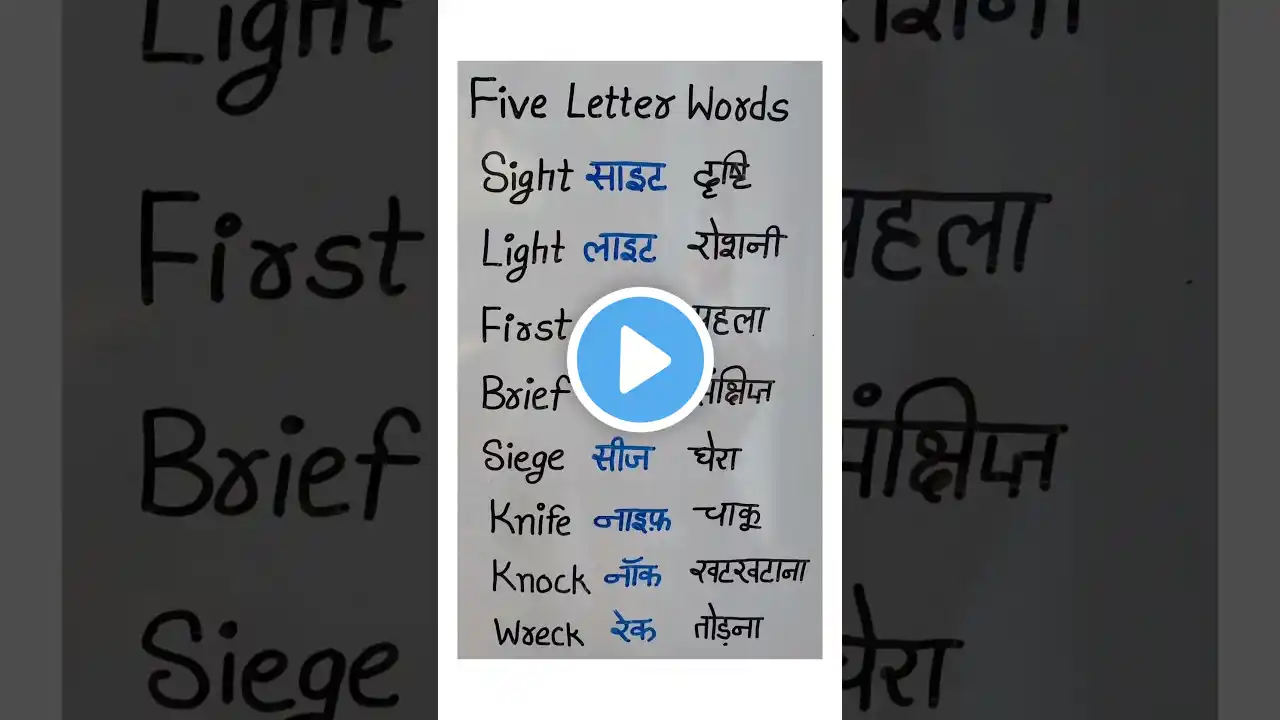 Five Letter Words
Sight साइट दृष्टि
Light लाइट रोशनी
First
Brief
Siege सीज घेरा
Knife नाइफ़ चाकू
Knock नॉक खटखटाना
Wreck रेक तोड़ना